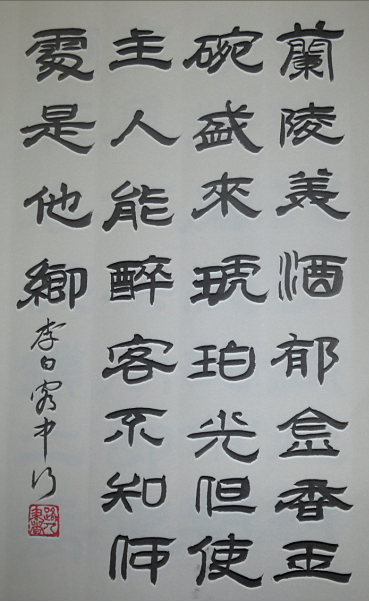 蘭陵美酒郁金香玉
碗盛來琥珀光但使
主人能醉客不知何
處是他鄉
李白客中行